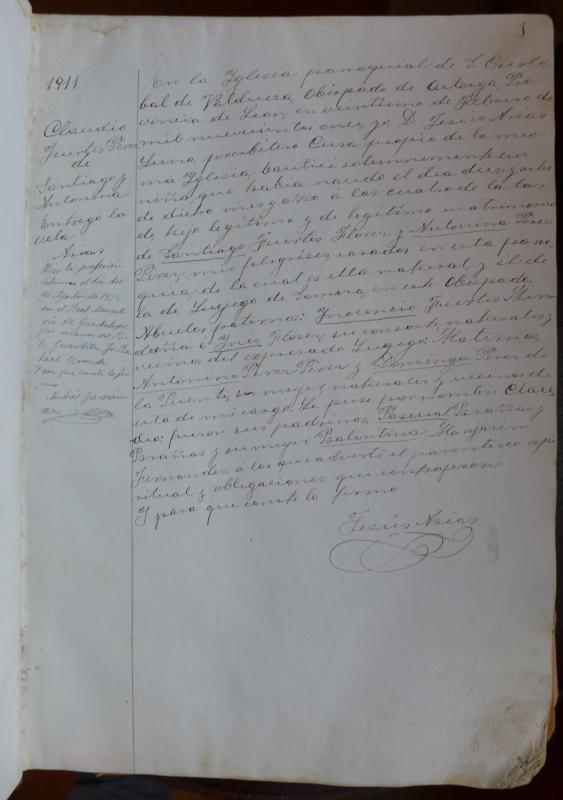 1911
Claudio
Fuertes Perez
de
Santiago y
Antonina
Entregó la
vela.
Arias
Hizo la profesión
solemne el día dos
de Agosto de 1932
en el Real Monaste
rio de Guadalupe,
en manos del P.
Guardian
Y para que conste lo fir
mo
Andrés
En la Yglesia parroquial de S. Cristo
bal de Valduera, Obispado de Astorga, Pro
vincia de Leon, en veintiuno de Febrero de
mil nuevecientos once, yo, D. Jesús Arias
Luna, presbitero Cura propio de la mis
ma Yglesia, bauticé solemnemente un
niño que habia nacido el dia diez y ocho
de dicho mes y año á las cuatro de la tar
de, hijo legítimo y de legítimo matrimonio
de Santiago Fuertes Florez y Antonina Perez
Perez, mis feligreses, casados en esta parro
quia, de la cual es ella natural, y él de
la de Luyego de Somoza, en este Obispado.
Abuelos paternos: Ynocencio Fuertes Men
daña é Ynes Florez, su consorte, naturales y
vecinos del expresado Luyego: Maternos,
Antonino Perez Perez y Dominga Perez de
la Puente, su mujer, naturales y vecinos de
esta de mi cargo. Le puse por nombre Clau
dio: fueron sus padrinos, Pascual Brañas y
Brañas y su mujer Balentina Monjarin
Fernandez á los que advertí el parentesco espi
ritual y obligaciones que contrajeron
Y para que conste lo firmo
Jesús Arias